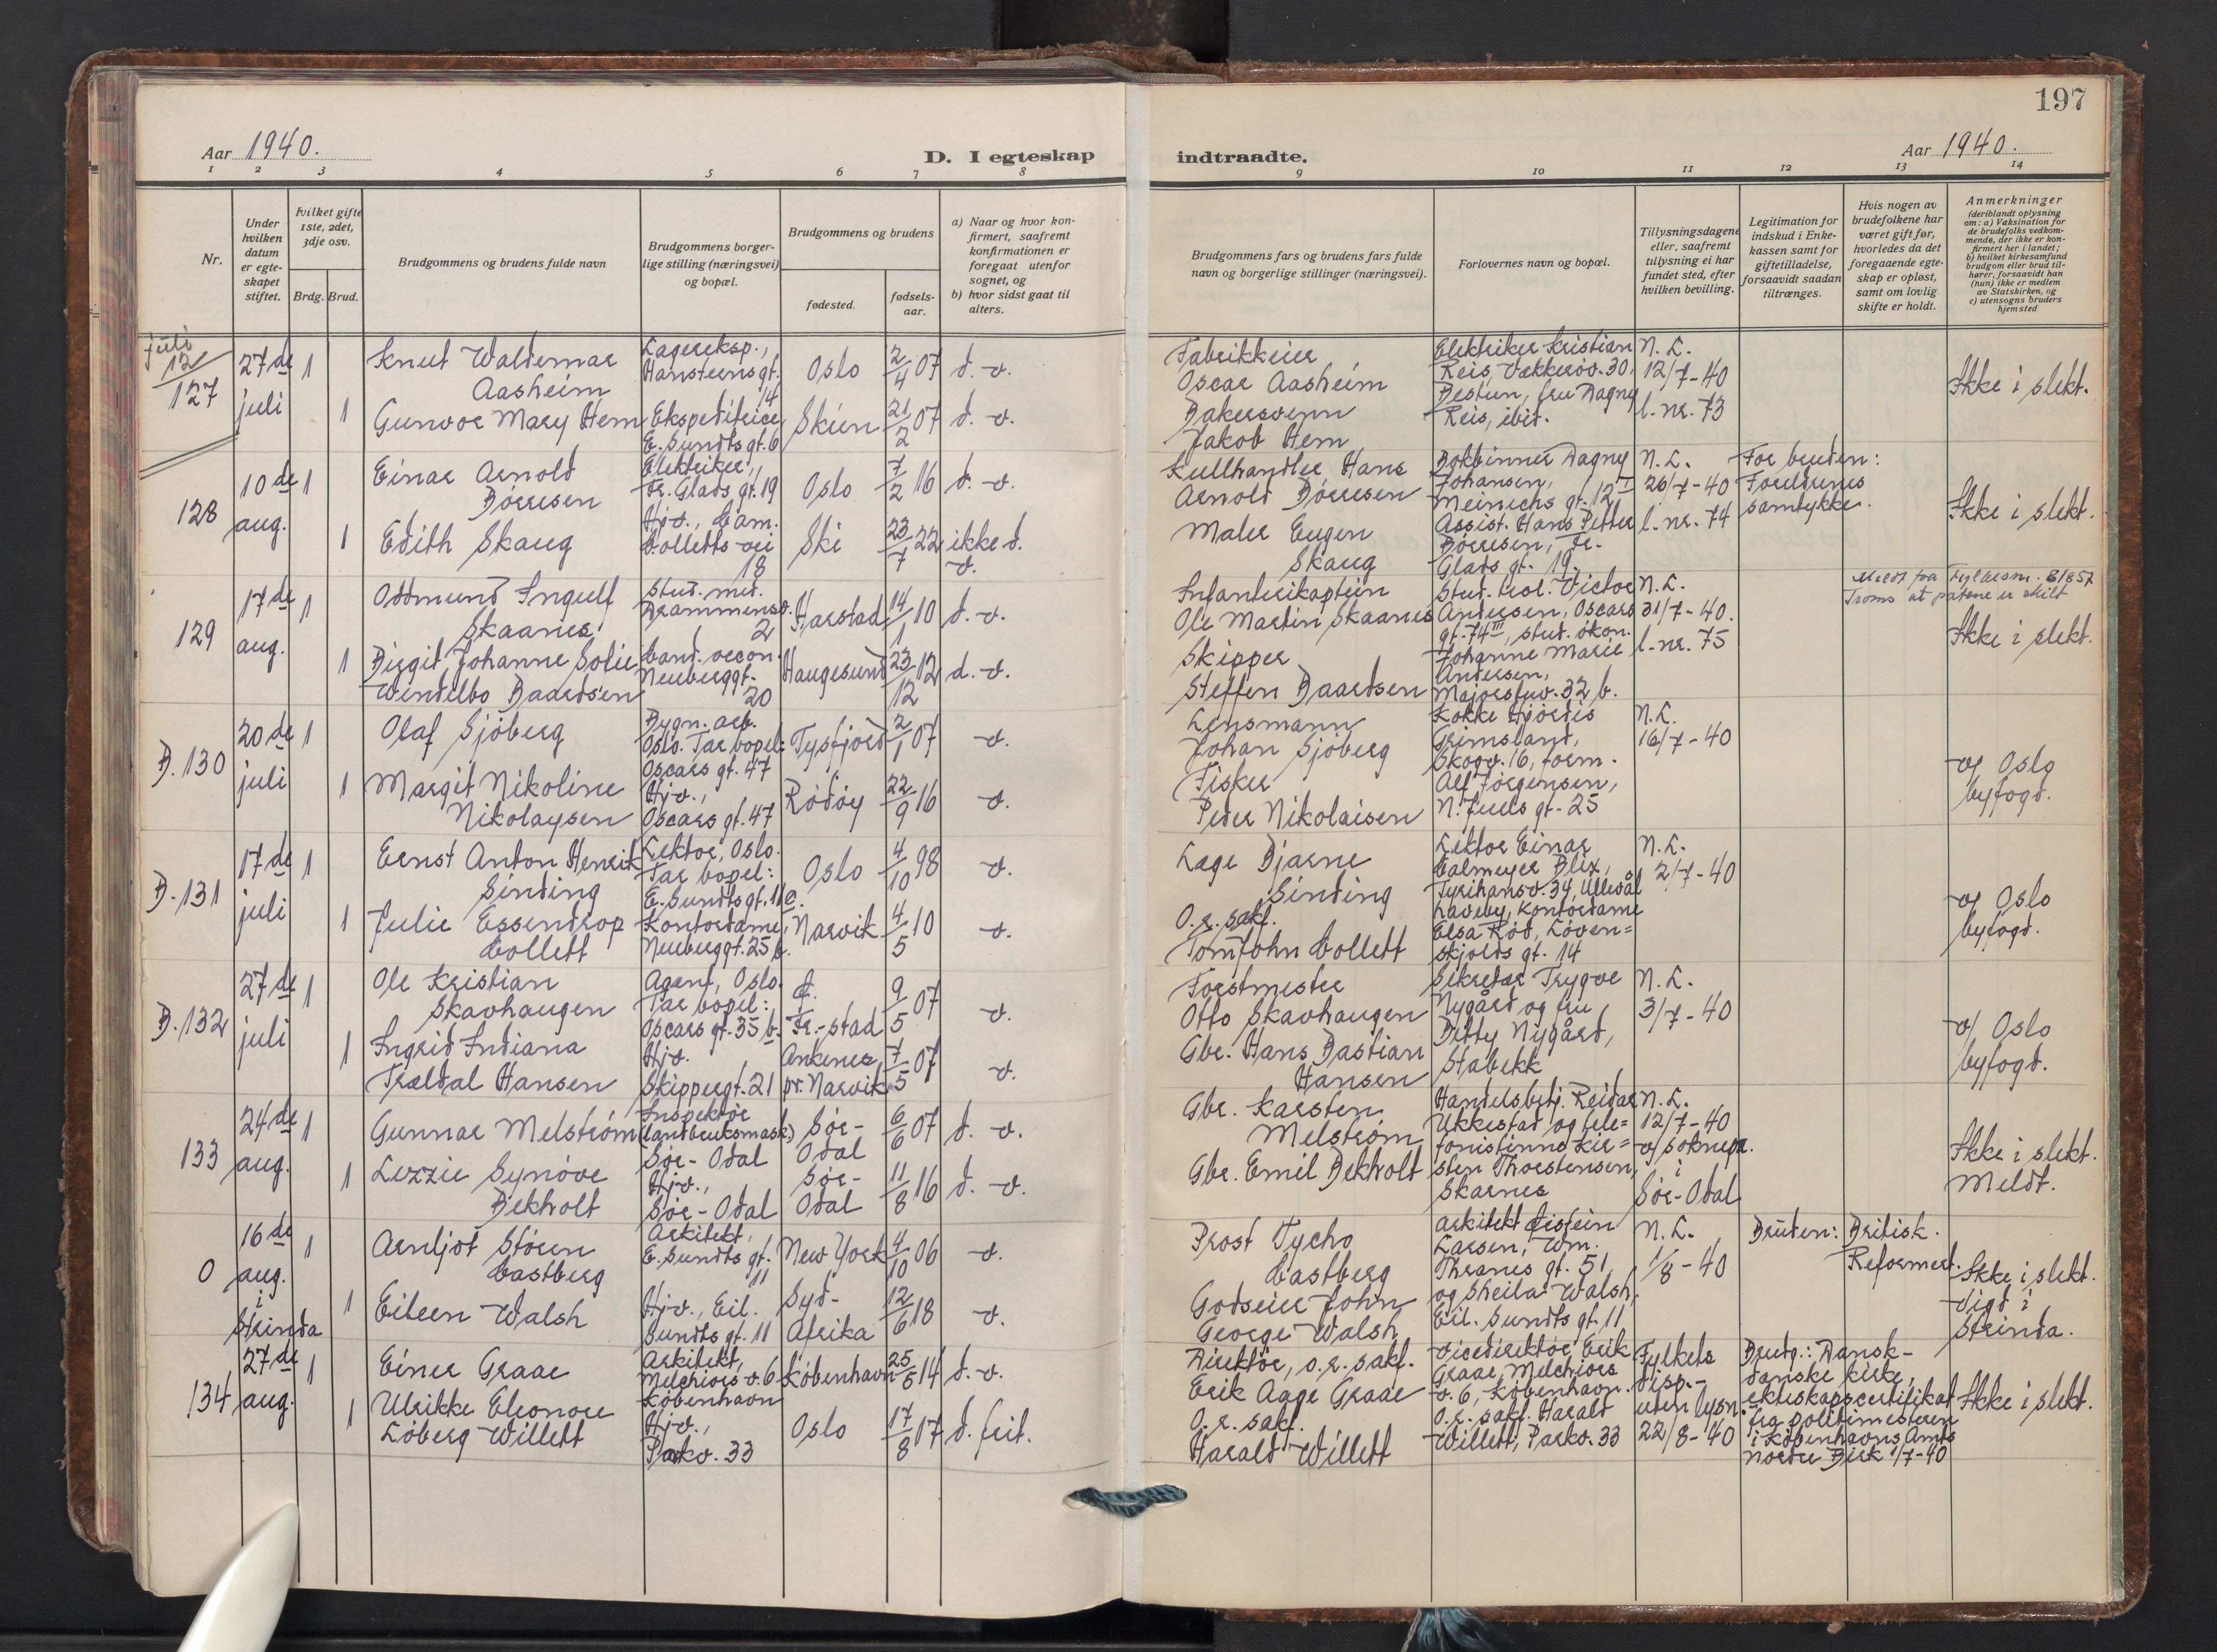 197
Aar 1940.
D. I egteskap
indtraadte.
Aar 1940.
1 2 3 4 5 6 7 8 9 10 11 12 13 14
Nr.
Under hvilken datum er egteskapet stiftet.
hvilket gifte 1ste, 2det, 3dje osv.
Brdg. Brud.
Brudgommens og brudens fulde navn
Brudgommens borgerlige stilling (næringsvei) og bopæl.
Brudgommens og brudens
fødested.
fødselsaar.
a) Naar og hvor konfirmert, saafremt konfirmationen er foregaat utenfor sognet, og
b) hvor sidst gaat til alters.
Brudgommens fars og brudens fars fulde navn og borgerlige stillinger (næringsvei).
Forlovernes navn og bopæl.
Tillysningsdagene eller, saafremt tillysning ei har fundet sted, efter hvilken bevilling.
Legitimation for indskud i Enkekassen samt for giftetilladelse, forsaavidt saadan tiltrænges.
Hvis nogen av brudefolkene har været gift før, hvorledes da det foregaaende egteskap er opløst, samt om lovlig skifte er holdt.
Anmerkninger
(deriblandt oplysning om: a) Vaksination for de brudefolks vedkommende, der ikke er konfirmert her i landet;
b) hvilket kirkesamfund brudgom eller brud tilhører, forsaavidt han (hun) ikke er medlem av Statskirken, og
c) utensogns bruders hjemsted
juli
12/
127
27de juli
1
Knut Waldemar Aasheim
Lagereksp., Hansteensgt. 14
Oslo
2/4 07
d. v.
1
Gunvor Mary Hem
Ekspeditrice, E. Sundts gt. 6
Skien
21/2 07
d. v.
Fabrikkeier Oscar Aasheim
Bakersvenn Jakob Hem
Elektriker Kristian Reis, Vækkerøv. 30,
Bestyr., fru Dagny Reis, ibid.
N. L. 12/7-40
l. nr. 73
Ikke i slekt.
128
10de aug.
1
Einar Arnold Börresen
Elektriker, Fr. Glads gt. 19
Oslo
7/2 16
d. v.
1
Edith Skaug
Hjv., Cam. Colletts vei 18
Ski
23/7 22
ikke d. v.
Kullhandler Hans Arnold Börresen
Maler Eugen Skaug
Bokbinner Dagny Johansen, Meinichs gt. 12 II
Assist. Hans Petter Börresen, Fr. Glads gt. 19.
N. L. 26/7-40
l. nr. 74
For bruden: Foreldrenes samtykke.
Ikke i slekt.
129
17de aug.
1
Oddmund Ingulf Skaanes
Stud. med. Drammensv. 2
Harstad
14/1 10
d. v.
1
Birgit Johanne Sofie Wendelbo Baardsen
Cand. oecon. Neuberggt. 20
Haugesund
23/12 12
d. v.
Infanterikaptein Ole Martin Skaanes
Skipper Steffen Baardsen
Stud. real. Victor Andersen, Oscars gt. 74 III, stud. ökon. Johanne Marie Andersen, Majorstuv. 32 b.
N. L. 31/7-40.
l. nr. 75
Meldt fra Fylkesm. Troms at partene er skilt
Ikke i slekt.
B. 130
20de juli
1
Olaf Sjöberg
Bygn. arb. Oslo. Tar bopel: Oscars gt. 47
Tysfjord
2/1 07
v.
1
Margit Nikoline Nikolaysen
Hjv., Oscars gt. 47
Rödöy
22/9 16
v.
Lensmann Johan Sjöberg
Fisker Peder Nikolaisen
Kokke Hjördis Grimsland, Skogv. 16, form. Alf Jörgensen, N. Juels gt. 25
N. L. 16/7-40
v/ Oslo byfogd.
B. 131
17de juli
1
Ernst Anton Henrik Sinding
Lektor, Oslo. Tar bopel: E. Sundts gt. 11 e.
Oslo
4/10 98
v.
1
Julie Essendrop Collett
Kontordame, Neuberggt. 25 b.
Narvik
4/5 10
v.
Lege Bjarne Sinding
O. r. sakf. Tom John Collett
Lektor Einar Calmeyer Blix, Tyrihansv. 34, Ullevål Haveby, Kontordame Elsa Röd, Löven=skjolds gt. 14
N. L. 2/7-40
v/ Oslo byfogd.
B. 132
27de juli
1
Ole Kristian Skavhaugen
Agent, Oslo. Tar bopel: Oscars gt. 35 b.
Fr.-stad
9/5 07
v.
1
Ingrid Indiana Trældal Hansen
Hjv. Skippergt. 21
Ankenes, pr. Narvik
7/5 07
v.
Forstmester Otto Skavhaugen
Gbr. Hans Bastian Hansen
Sekretær Trygve Nygård og fru Betty Nygård, Stabekk
N. L. 3/7-40
v/ Oslo byfogd.
133
24de aug.
1
Gunnar Melström
Inspektör (landbruksmask.) Sör-Odal
Sör-Odal
6/6 07
d. v.
1
Lizzie Synöve Bekholt
Hjv., Sör-Odal
Sör-Odal
11/8 16
d. v.
Gbr. Karsten Melström
Gbr. Emil Bekholt
Handelsbetj. Reidar Ukkestad og tele=fonistinne Kir=sten Thorstensen, Skarnes
N. L. 12/7-40 v/ sokнepr. i Sör-Odal
Ikke i slekt.
Meldt.
0
16de aug. i Strinda
1
Arnljot Stören Castberg
Arkitekt, E. Sundts gt. 11
New York
4/10 06
v.
1
Eileen Walsh
Hjv., Eil. Sundts gt. 11
Syd-Afrika
12/6 18
v.
Prost Tycho Castberg
Godseier John George Walsh
Arkitekt Eistein Larsen, Wm. Thranes gt. 51, og Sheila Walsh, Eil. Sundts gt. 11
N. L. 1/8-40
Bruden: Britisk. Reformert.
Ikke i slekt.
Vigd i Strinda.
134
27de aug.
1
Einer Graae
Arkitekt, Melchiors v. 6 København
København
25/5 14
d. v.
1
Ulrikke Eleonore Löberg Willett
Hjv., Parkv. 33
Oslo
17/8 17
d. frit.
Direktör, o. r. sakf. Erik Aage Graae
O. r. sakf. Harald Willett
Vicedirektör Erik Graae, Melchiors v. 6, København.
O. r. sakf. Harald Willett, Parkv. 33
Fylkets disp. uten lysn. 22/8-40
Brudg.: Dansk- danske kirke, ekteskapscertifikat fra politimesteren i Københavns Amts Nordre Birk 1/7-40
Ikke i slekt.